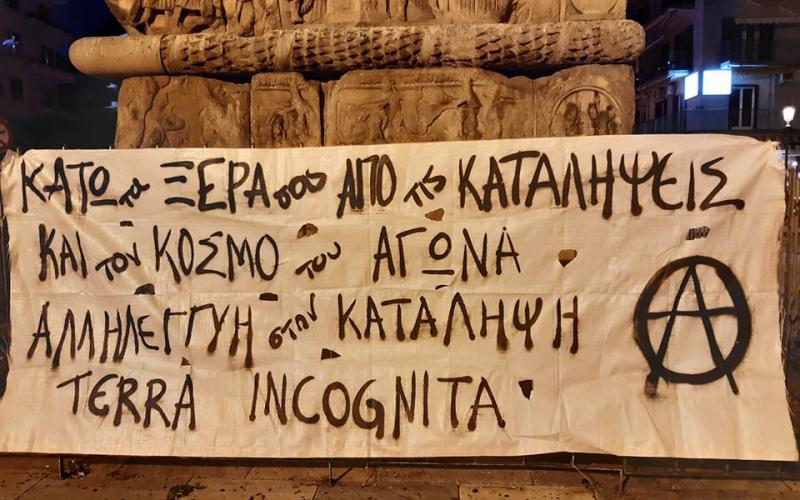 ΚΑΤΩ τα ΞΕΡΑ σου ΑΠΟ τις ΚΑΤΑΛΗΨΕΙΣ
ΚΑΙ τον ΚΟΣΜΟ του ΑΓΩΝΑ
ΑΛΛΗΛΕΓΓΥΗ στην ΚΑΤΑΛΗΨΗ
TERRA INCOGNITA